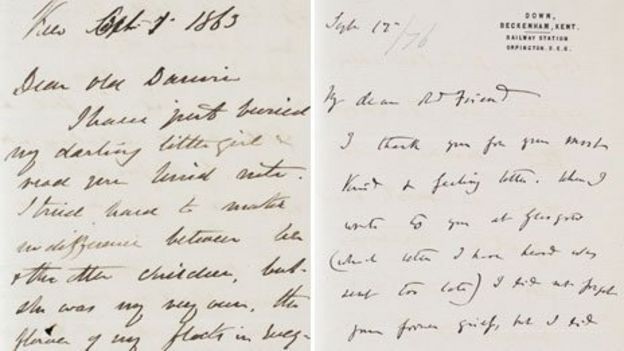 Kew Sept 1 1863
Dear Old Darwin
I have just buried
my darling little girl &
read your kind note.
I tried hard to make
no difference between her
& the other children, but
she was my very own, the
flower of my flock in every
DOWN,
BECKENHAM, KENT.
RAILWAY STATION
ORPINGTON. S.E.R.
Sept 12 /76
My dear old Friend
I thank you for your most
kind & feeling letter. When I
wrote to you at Glasgow
(which letter I have heard was
sent too late) I did not forget
your former grief, but I did